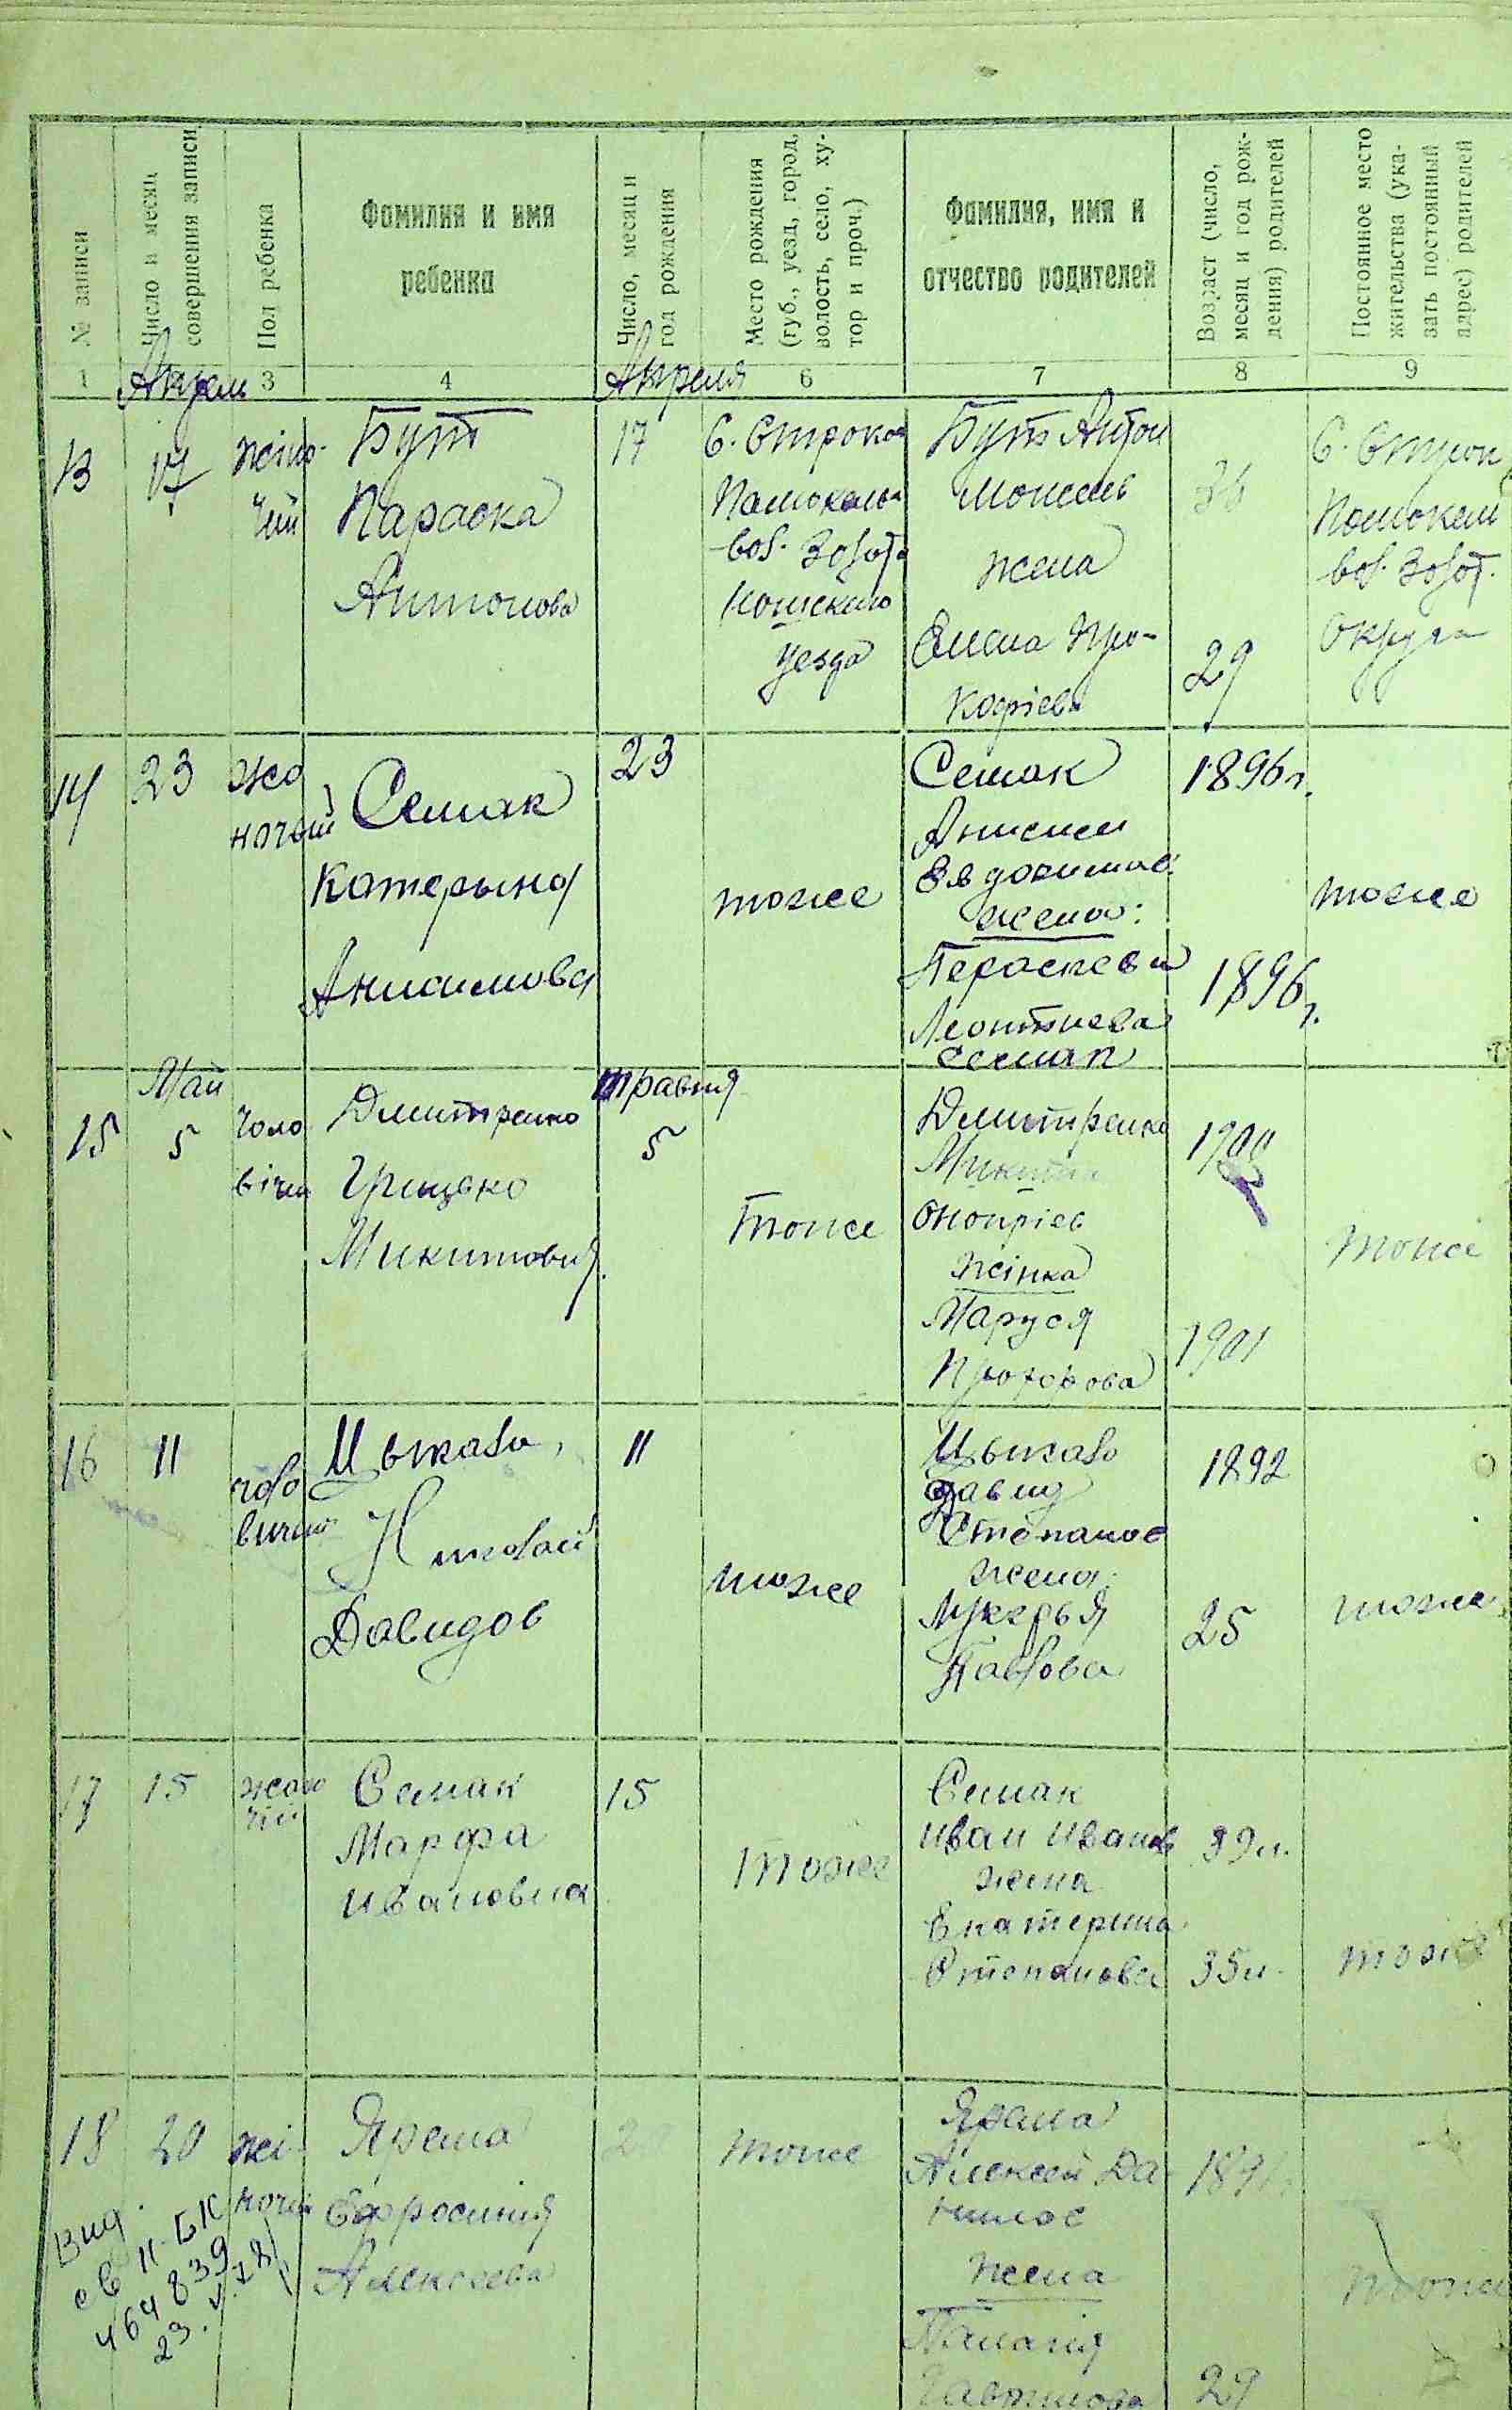 № записи
Число и месяц
совершения записи
Пол ребенка
Фамилия и имя
ребенка
Число, месяц и
год рождения
Место рождения
(губ., уезд, город,
волость, село, ху-
тор и проч.)
Фамилия, имя и
отчество родителей
Возраст (число,
месяц и год рож-
дения) родителей
Постоянное место
жительства (ука-
зать постоянный
адрес) родителей
1
Апрель
3
4
Апреля
6
7
8
9
13
17
Бут
Параска
Антонова
17
вол. Золото
ношского
уезда
Бут Антон
жена
Елена Про-
кофіева
36
29
вол. Золот.
Округа
14
23
жо
ночый
Семак
Катерына
Анисимова
23
тоже
Семак
Анисим
Евдокимов
жена:
Параскева
Леонтиева
Семак
1896 г.
1896 г.
тоже
Май
15
5
Чоло
вічи
Дмитренко
Грицько
Микитович
травня
5
тоже
Дмитренко
Микита
Оноприев
жінка
Маруся
Прохорова
1900
1901
тоже
16
11
чоло
вичий
Цыкало
Николай
Давидов
11
тоже
Цыкало
Давид
Степанов
жена
Лукерья
Павлова
1892
25
тоже
17
15
Семак
Марфа
Ивановна
15
тоже
Семак
Иван Иванов
жена
Екатерина
Степанова
39 л.
35 л.
тоже
18
20
жі
ночій
Ярема
Ефросинія
Алексеева
20
тоже
Ярема
Алексей Да
нилов
жена
Палагия
Гаврилова
29
тоже
Вид.
св II-БК
464839
23.V.78